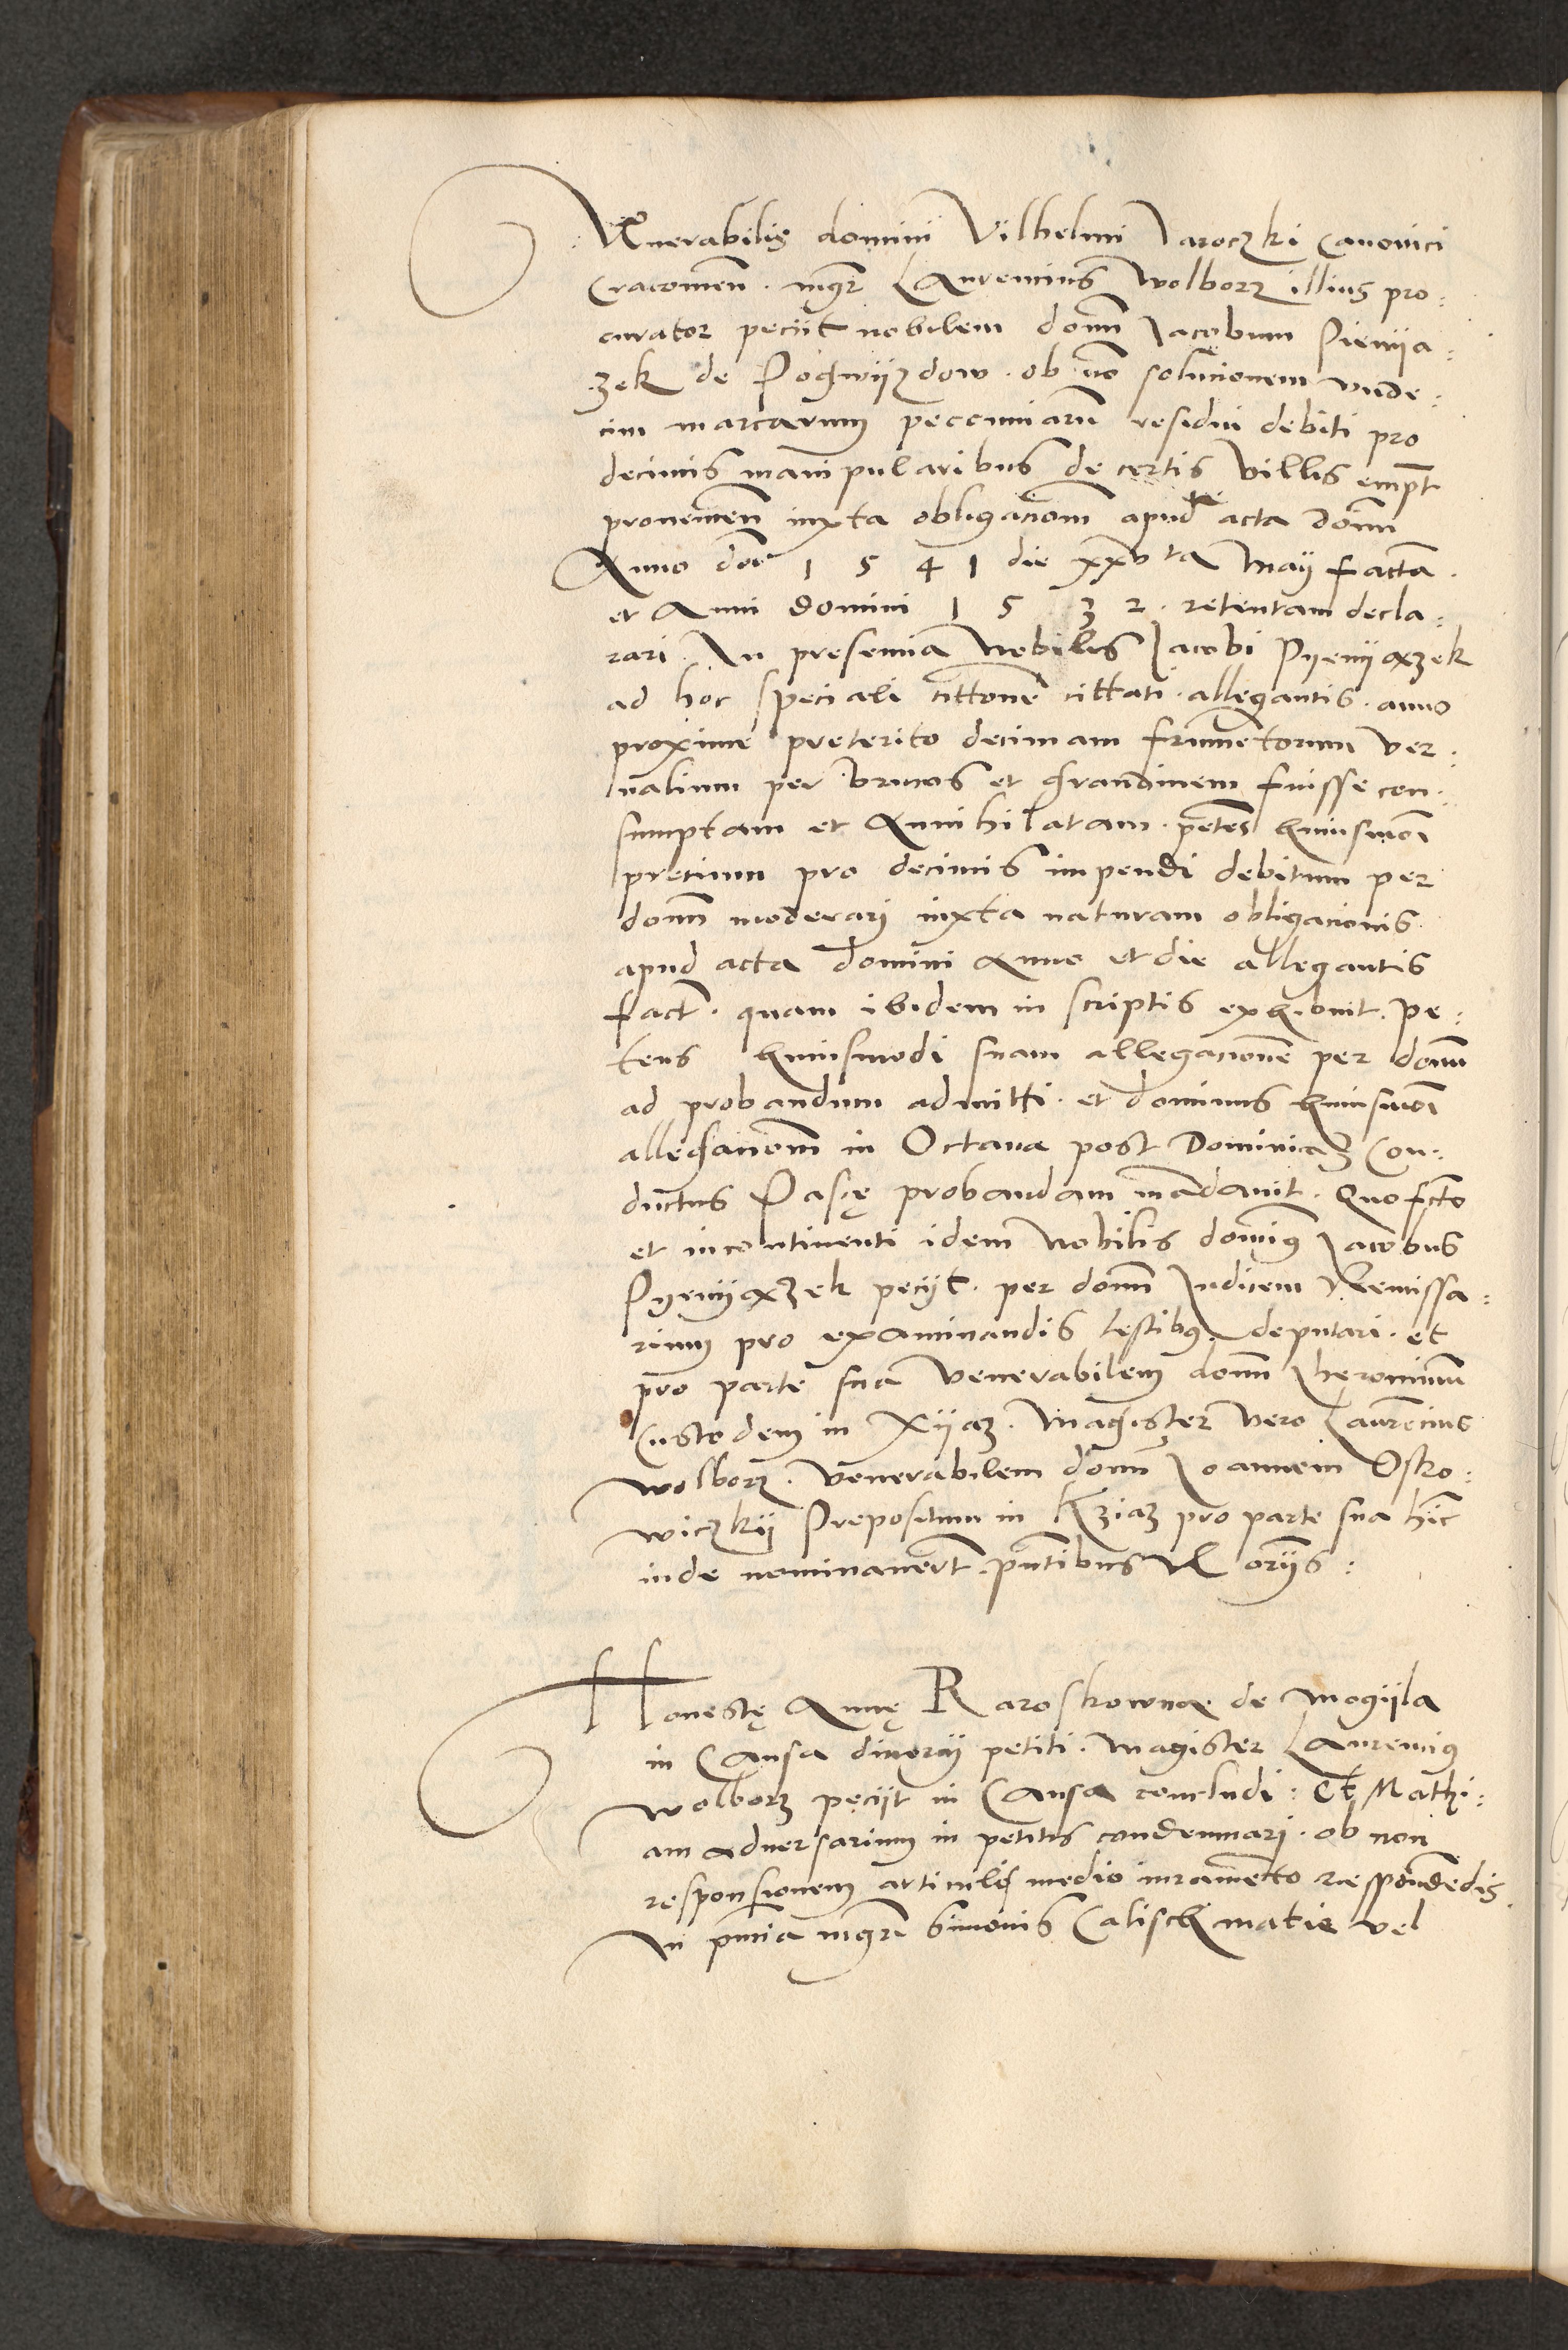 Venerabilis domini Vilhelmi Jaroczki Canonici
Cracovien̄. mgr̄ Laurencius Wolborz illius pro:
curator peciit nobilem domn̄ Jacobum Pienya:
zek de Pogwyzdow. ob nō solucionem vnde:
cim marcarum peccuniarū residui debiti pro
decimis manipularibus de certis villis empt̄
provenien̄ iuxta obligacionem apud acta domn̄
Anno dni 1 5 4 1 die xxvta Maii facta.
et Anni domini 1 5 3 2. retentam decla:
rari. In presencia Nobilis Jacobi Pyenyazek
ad hoc speciali cittone cittati. allegantis. anno
proxime preterito decimam frumentorum ver:
nalium per bruc̄os et grandinem fuisse con:
sumptam et Annihilatam. petes huiusmoi
precium pro decimis impendi debitum per
domn̄ moderari iuxta naturam obligacionis
apud acta domini Anno et die allegantis
fact̄. quam ibidem in scriptis exhibuit. pe:
tens huiusmodi suam allegacione per domn̄
ad probandum admitti. et dominus huiusmoi
allegacionem in Octava post Dominicaȝ Con:
ductus Pascę probandam mādavit. Quo fcto
et incontinenti idem Nobilis dominus Jacobus
Pyenyazek peciit. per domn̄ Judicem Remissa:
rium pro examinandis testibus. deputari. et
pro parte sua venerabilem domn̄ Jheronimū
Custodem in Xyaz. Magister vero Laurencius
Wolborz. venerabilem domn̄ Joannem Ostro:
wiczkii Prepositum in Kziaz pro parte sua hic
inde nominavert. pn̄tibus vt ori͞s:
Honestę Annę Raroskowna de Mogyla
in Causa divorcii petiti. Magister Laurencius
Wolborz peciit in Causa concludi: Et Mathi:
am adversarium in petitis condemnari. ob non
responsionem articulis medio iuramento respondedis
In pn̄cia mgri Simonis Calisch Mathie vel